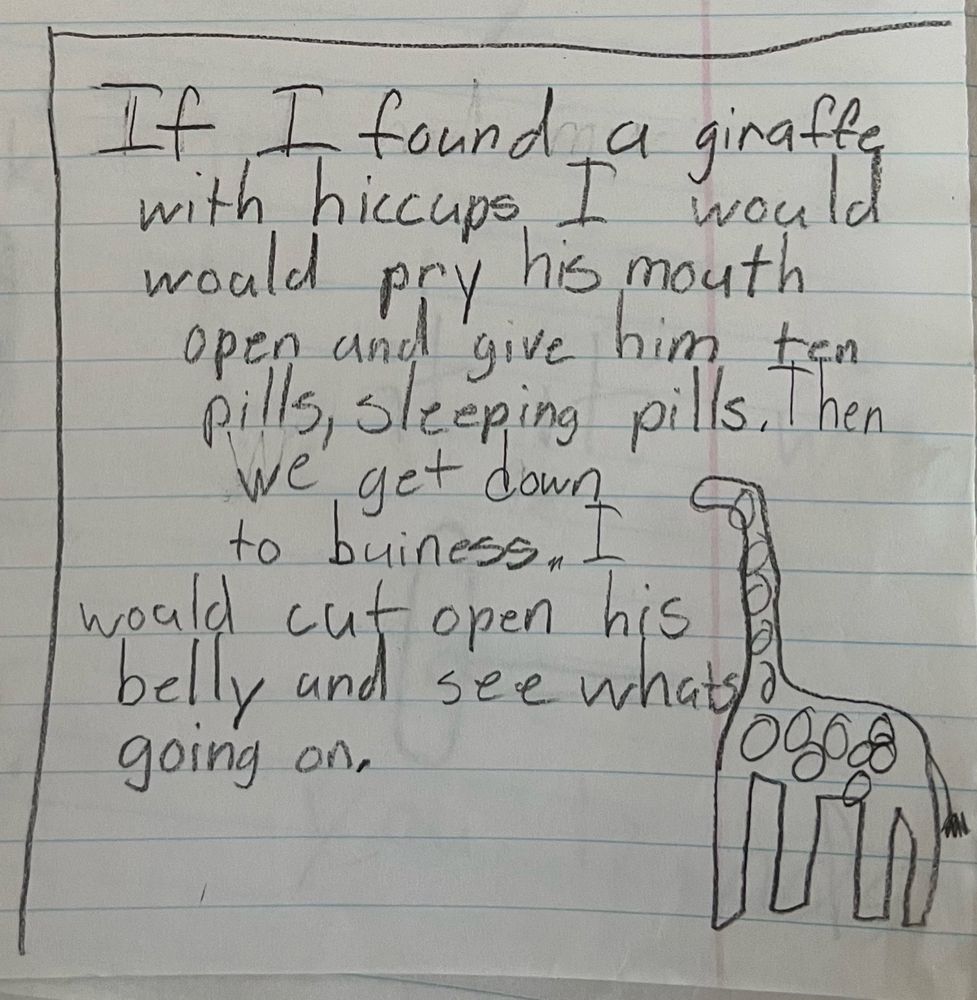 If I found a giraffe
with hiccups, I would
would pry his mouth
open and give him ten
pills, sleeping pills. Then
we get down
to buiness. I
would cut open his
belly and see whats
going on.